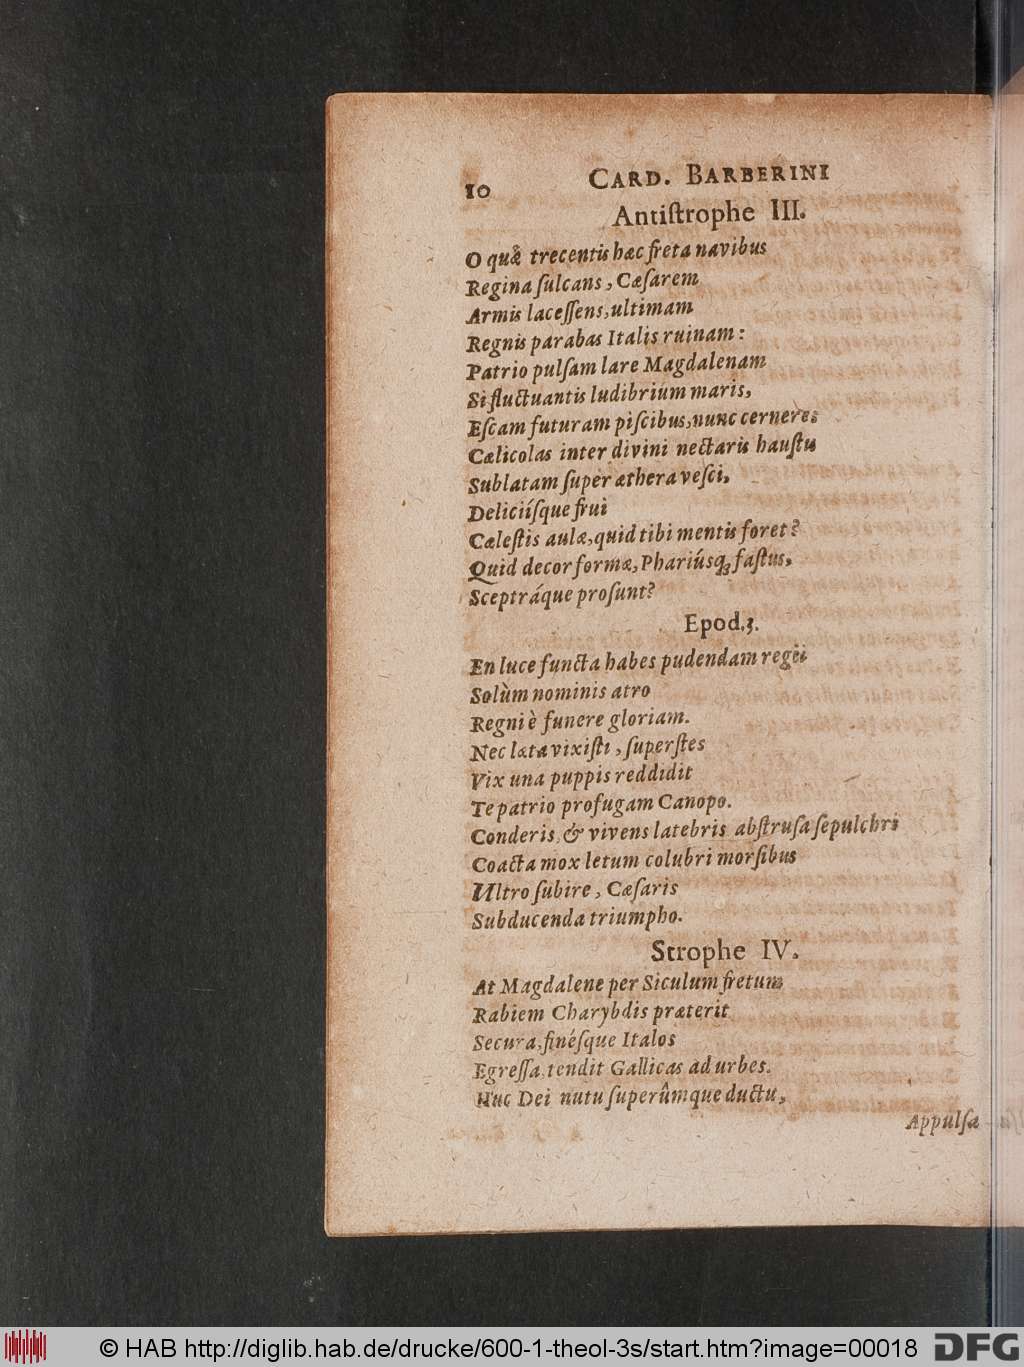 10 CARD. BARBERINI
Antiſtrophe III.
O quæ trecentis hæc freta navibus
Regina ſulcans, Cæſarem
Armis laceſſens, ultimam
Regnis parabas Italis ruinam:
Patrio pulſam lare Magdalenam
Si fluctuantis ludibrium maris,
Eſcam futuram piſcibus, nunc cerneres
Cælicolas inter divini nectaris hauſtus
Sublatam ſuper æthera veſci,
Deliciíſque frui
Cæleſtis aulæ, quid tibi mentis foret?
Quid decor formæ, Phariúsq; faſtus,
Sceptráque proſunt?
Epod. 3.
En luce functa habes pudendam regii
Solùm nominis atro
Regni è funere gloriam.
Nec læta vixiſti, ſuperſtes
Vix una puppis reddidit
Te patrio profugam Canopo.
Conderis, & vivens latebris abſtruſa ſepulchri
Coacta mox letum colubri morſibus
Ultro ſubire, Cæſaris
Subducenda triumpho.
Strophe IV.
At Magdalene per Siculum fretum
Rabiem Charybdis præterit
Secura, finéſque Italos
Egreſſa, tendit Gallicas ad urbes.
Huc Dei nutu ſuperûmque ductu,
Appulſa
© HAB http://diglib.hab.de/drucke/600-1-theol-3s/start.htm?image=00018
DFG